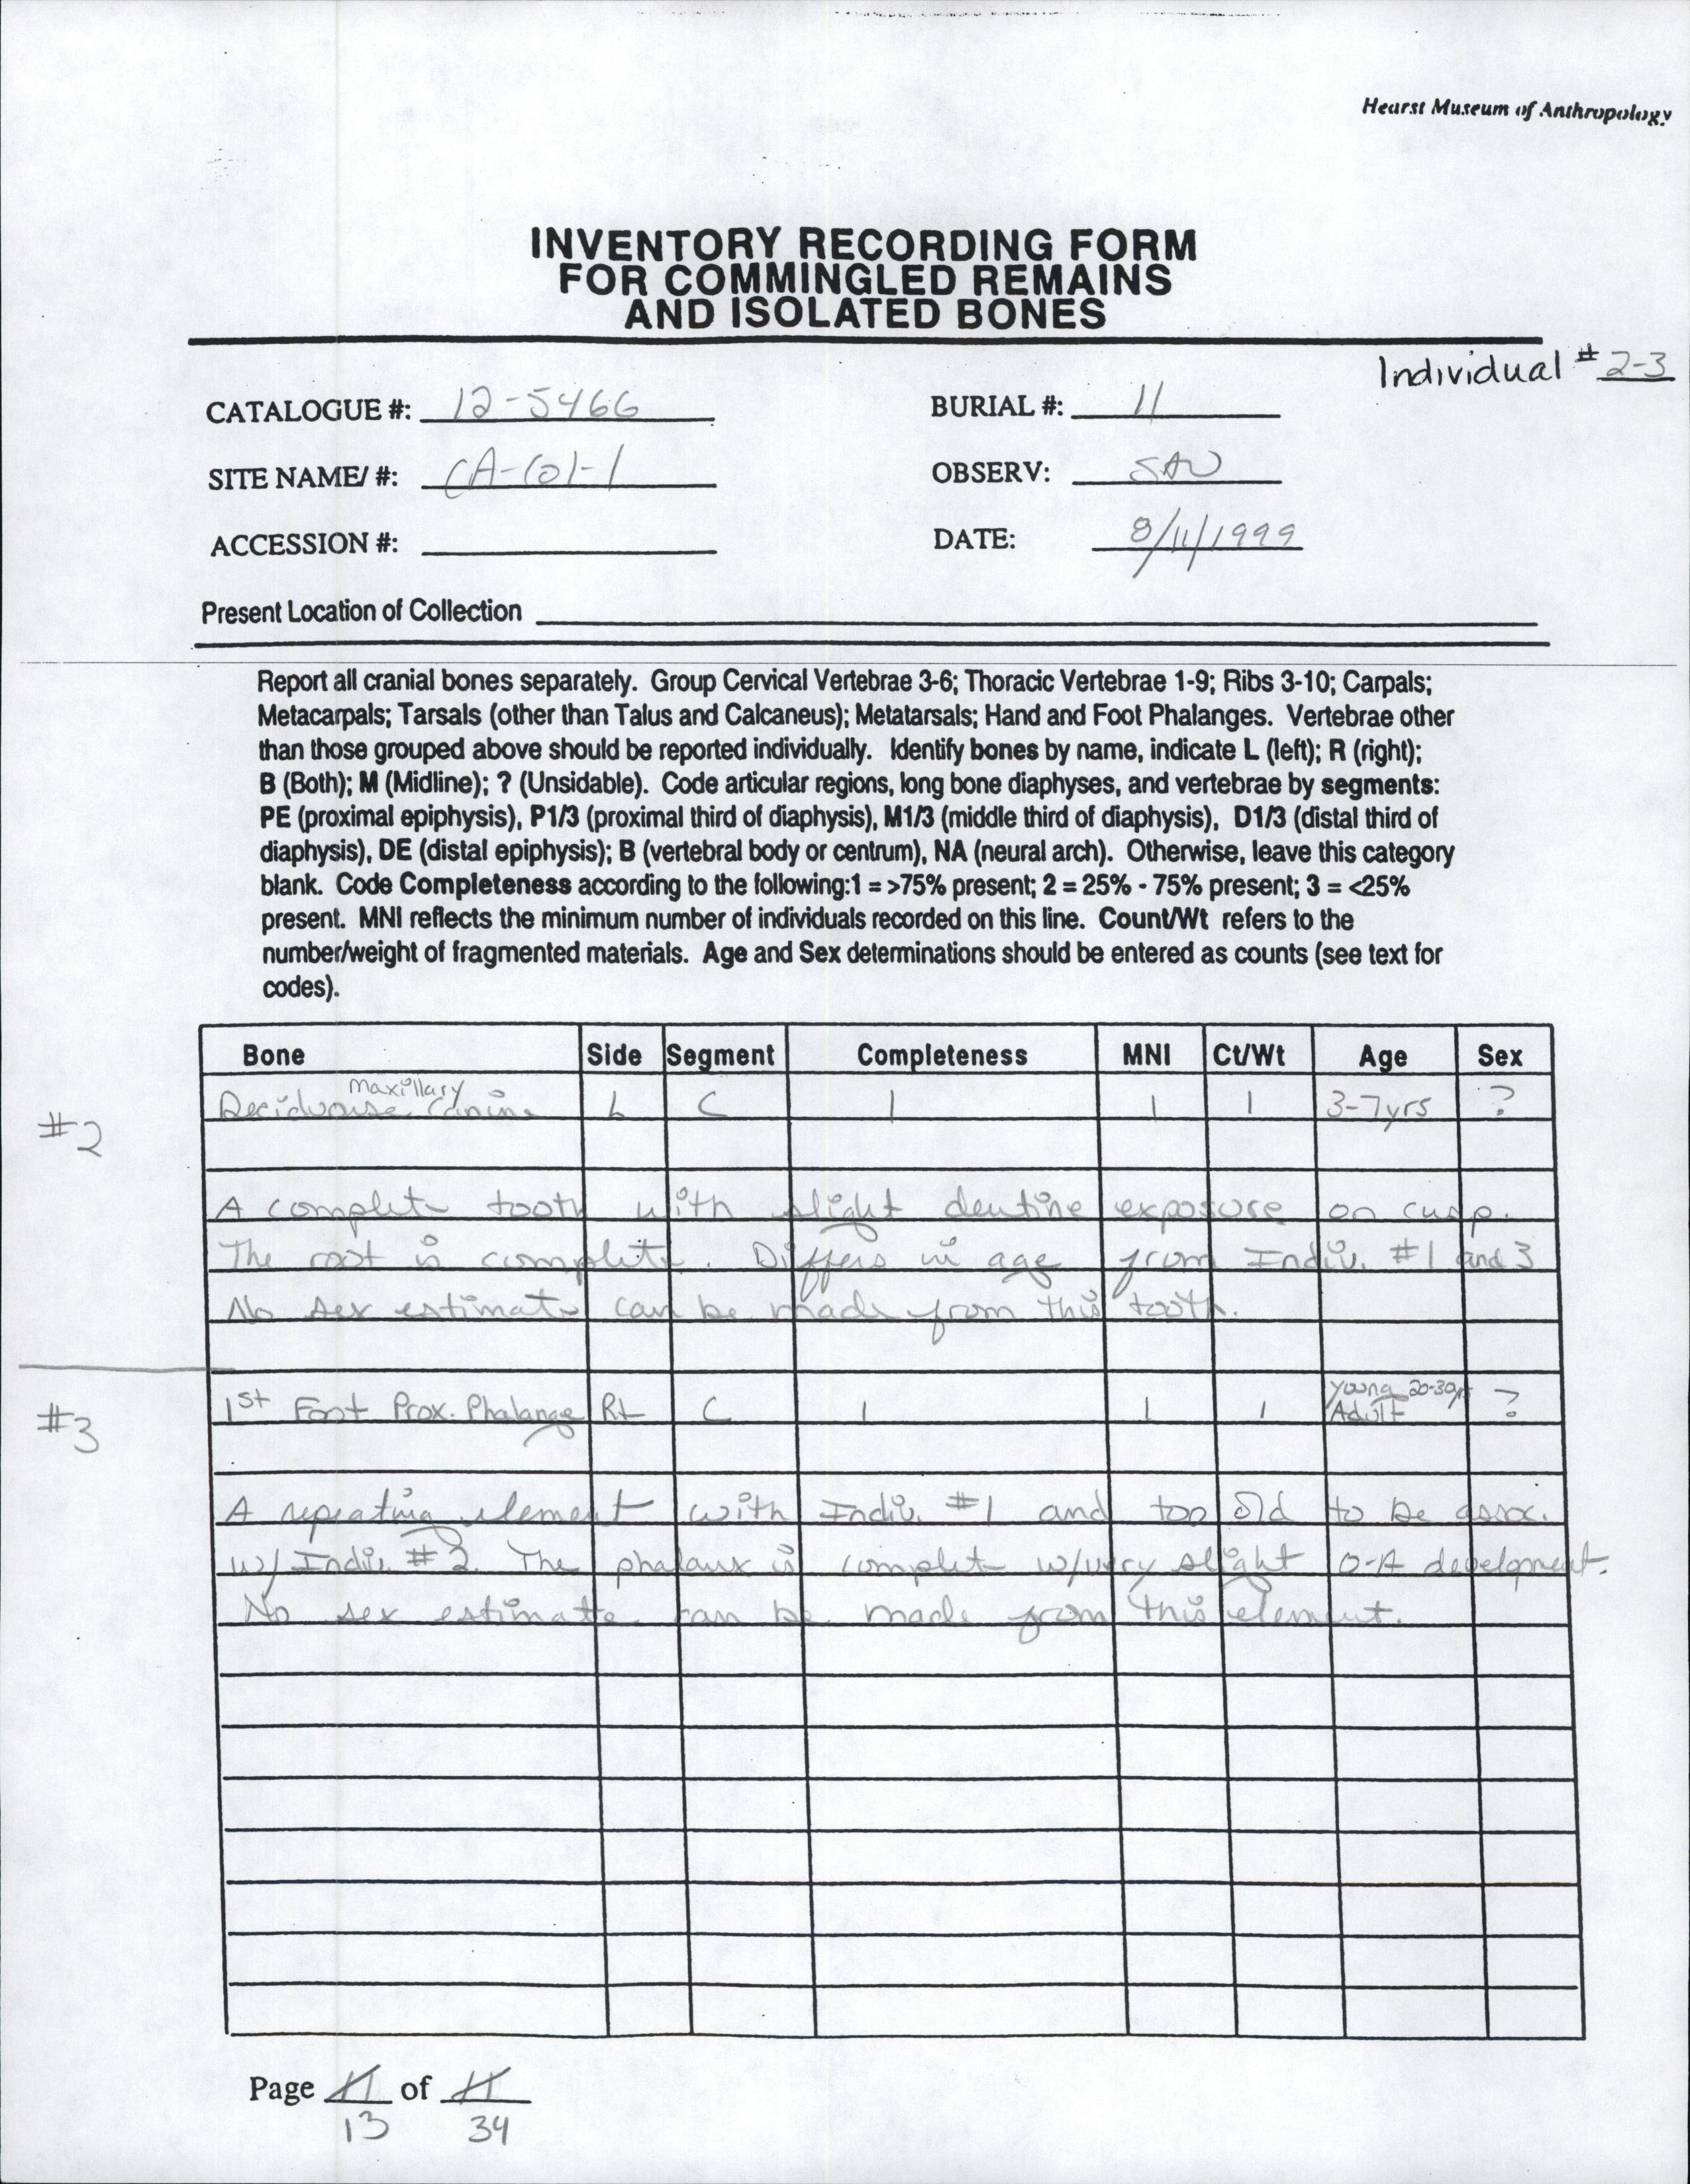 Hearst Museum of Anthropology
INVENTORY RECORDING FORM
FOR COMMINGLED REMAINS
AND ISOLATED BONES
Individual # 2-3
CATALOGUE #: 12-5466 BURIAL #: 11
SITE NAME/ #: CA-Col-1 OBSERV: SAW
ACCESSION #: DATE: 8/11/1999
Present Location of Collection
Report all cranial bones separately. Group Cervical Vertebrae 3-6; Thoracic Vertebrae 1-9; Ribs 3-10; Carpals;
Metacarpals; Tarsals (other than Talus and Calcaneus); Metatarsals; Hand and Foot Phalanges. Vertebrae other
than those grouped above should be reported individually. Identify bones by name, indicate L (left); R (right);
B (Both); M (Midline); ? (Unsidable). Code articular regions, long bone diaphyses, and vertebrae by segments:
PE (proximal epiphysis), P1/3 (proximal third of diaphysis), M1/3 (middle third of diaphysis), D1/3 (distal third of
diaphysis), DE (distal epiphysis); B (vertebral body or centrum), NA (neural arch). Otherwise, leave this category
blank. Code Completeness according to the following:1 = >75% present; 2 = 25% - 75% present; 3 = <25%
present. MNI reflects the minimum number of individuals recorded on this line. Count/Wt refers to the
number/weight of fragmented materials. Age and Sex determinations should be entered as counts (see text for
codes).
Bone Side Segment Completeness MNI Ct/Wt Age Sex
maxillary
#2 Deciduouse Canine L C 1 1 1 3-7yrs ?
A complete tooth with slight dentine exposure on cusp.
The root is complete. Differs in age from Indiv. #1 and 3
No sex estimate can be made from this tooth.
Young 20-30yr
#3 1st Foot Prox. Phalange Rt C 1 1 1 Adult ?
A repeating element with Indiv. #1 and too old to be assoc.
w/ Indiv. #2. The phalanx is complete w/very slight O-A development.
No sex estimate can be made from this element.
Page 11 of 11
13 34